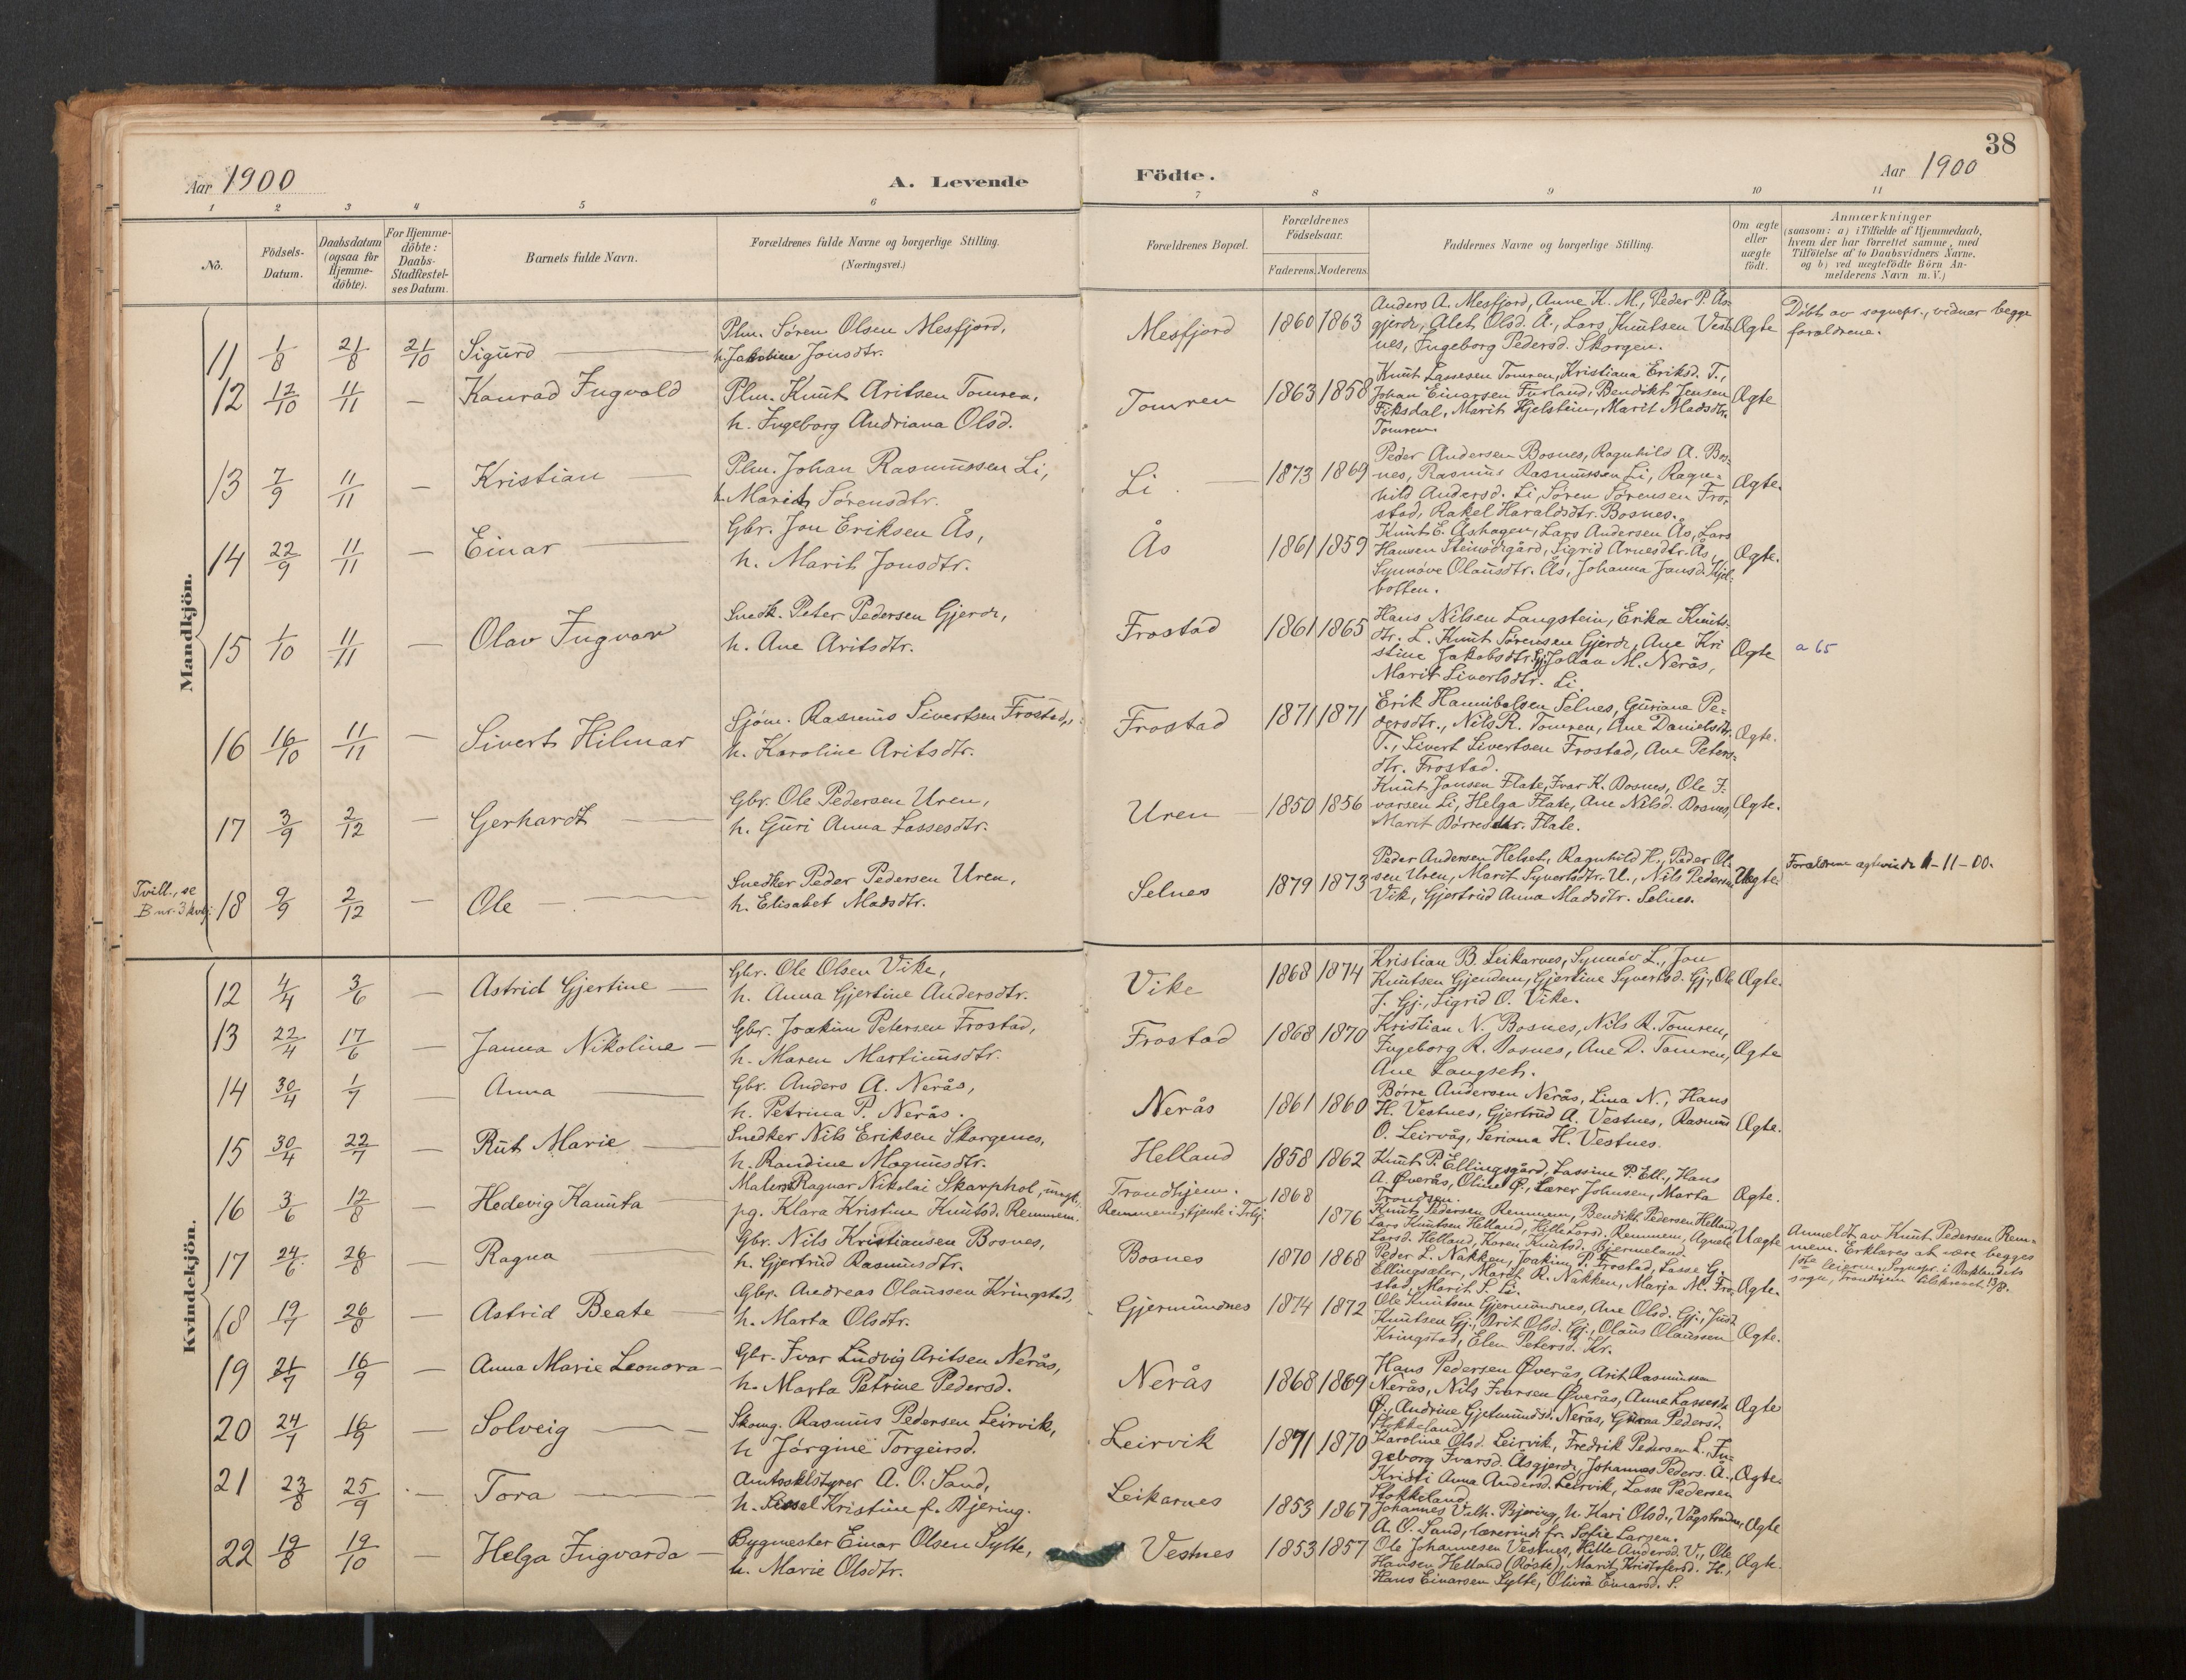 38
Aar 1900
A. Levende Födte.
Aar 1900
1 2 3 4 5 6 7 8 9 10 11
No.
Födsels-Datum.
Daabsdatum (ogsaa for Hjemme-döbte).
For Hjemme-döbte: Daabs-Stadfæstel-ses Datum.
Barnets fulde Navn.
Forældrenes fulde Navne og borgerlige Stilling.
(Næringsvei.)
Forældrenes Bopæl.
Forældrenes Födselsaar.
Faderens. Moderens.
Faddernes Navne og borgerlige Stilling.
Om ægte eller uægte födt.
Anmærkninger
(saasom: a) i Tilfælde af Hjemmedaab,
hvem der har forrettet samme, med
Tilföielse af to Daabsvidners Navne,
og b) ved uægtefödte Börn An-
melderens Navn m. V.)
Mandkjön.
11 1/8 21/8 21/10 Sigurd
Plm. Søren Olsen Mesfjord,
h. Jakobine Jonsdtr.
Mesfjord 1860 1863
Anders A. Mesfjord, Anne K. M., Peder P. Ås-
gjerde, Alet Olsd. Å., Lars Knutsen Vest-
nes, Ingeborg Pedersd. Skorgen.
Ægte
Döbt av sognepr., vidner begge
forældrene.
12 12/10 11/11 — Konrad Ingvald
Plm. Knut Aritsen Tomren,
h. Ingeborg Andriana Olsd.
Tomren 1863 1858
Knut Lassesen Tomren, Kristiana Eriksd. T.,
Johan Einarsen Furland, Bendikt Jensen
Fiksdal, Marit Hjelstein, Marit Madsdtr.
Tomren.
Ægte
13 7/9 11/11 — Kristian
Plm. Johan Rasmussen Li,
h. Marit Sørensdtr.
Li. 1873 1869
Peder Andersen Bosnes, Ragnhild A. Bos-
nes, Rasmus Rasmussen Li, Ragn-
hild Andersd. Li, Søren Sørensen Fro-
stad, Rakel Haraldsdtr. Bosnes.
Ægte.
14 22/9 11/11 — Einar
Gbr. Jon Eriksen Ås,
h. Marit Jonsdtr.
Ås 1861 1859
Knut E. Åshagen, Lars Andersen Ås, Lars
Hansen Steinsødegård, Sigrid Arnesdtr. Ås,
Synnøve Olausdtr. Ås, Johanna Jonsd. Kjel-
botten.
Ægte.
15 1/10 11/11 — Olav Ingvar
Snedk. Peter Pedersen Gjerde,
h. Ane Aritsdtr.
Frostad 1861 1865
Hans Nilsen Langstein, Erika Knuts-
dtr. L. Knut Sørensen Gjerde, Ane Kri
stine Jakobsdtr. Gj. Johan M. Nerås,
Marit Sivertsdtr. Li
Ægte
a 65
16 16/10 11/11 — Sivert Hilmar
Sjøm. Rasmus Sivertsen Frostad,
h. Karoline Aritsdtr.
Frostad 1871 1871
Erik Hannibalsen Selnes, Guriane Pe-
dersdtr., Nils R. Tomren, Ane Danielsdtr.
T., Sivert Sivertsen Frostad, Ane Peters-
dtr. Frostad.
Ægte.
17 3/9 2/12 — Gerhardt
Gbr. Ole Pedersen Uren,
h. Guri Anna Lassesdtr.
Uren 1850 1856
Knut Jonsen Flate, Ivar K. Bosnes, Ole I-
varsen Li, Helga Flate, Ane Nilsd. Bosnes,
Marit Børresdtr. Flate.
Ægte.
Tvill., se
B nr. 3 kvkj.
18 9/9 2/12 — Ole
Snedker Peder Pedersen Uren,
h. Elisabet Madsdtr.
Selnes 1879 1873
Peder Andersen Helset, Ragnhild H., Peder Ol-
sen Uren, Marit Syvertsdtr. U., Nils Pedersen
Vik, Gjertrud Anna Madsdtr. Selnes.
Uægte.
Forældrene ægteviede 11-11-00.
Kvindekjön.
12 4/4 3/6 — Astrid Gjertine
Gbr. Ole Olsen Vike,
h. Anna Gjertine Andersdtr.
Vike 1868 1874
Kristian B. Leikarnes, Synnøv L., Jon
Knutsen Gjendem, Gjertine Syvertsd. Gj., Ole
J. Gj., Sigrid O. Vike.
Ægte.
13 22/4 17/6 — Janna Nikoline
Gbr. Joakim Petersen Frostad,
h. Maren Martinusdtr.
Frostad 1868 1870
Kristian N. Bosnes, Nils R. Tomren,
Ingeborg R. Bosnes, Ane D. Tomren,
Ane Langset.
Ægte
14 30/4 1/7 — Anna
Gbr. Anders A. Nerås,
h. Petrina P. Nerås.
Nerås 1861 1860
Børre Andersen Nerås, Lina N., Hans
H. Vestnes, Gjertrud A. Vestnes, Rasmus
O. Leirvåg, Seriana H. Vestnes.
Ægte.
15 30/4 22/7 — Rut Marie
Snedker Nils Eriksen Skorgenes,
h. Randine Magnusdtr.
Helland 1858 1862
Knut P. Ellingsgård, Lassine P. Ell., Hans
A. Øverås, Oline Ø., Lærer Johnsen, Marta
Trondsen.
Ægte.
16 3/6 12/8 — Hedevig Kanuta
Maler Ragnar Nikolai Skarphol, ungk.,
pg. Klara Kristine Knutsd. Remmem.
Trondhjem. 1868
Remmem, tjente i Trhj. 1876
Knut Pedersen Remmem, Bendikt Pedersen Helland,
Lars Knutsen Helland, Hylle Larsd. Remmem, Agnete
Larsd. Helland, Karen Knutsd. Bjermeland.
Uægte
Anmeldt av Knut Pedersen Rem-
mem. Erklæres at være begges
1ste leierm. Sognepr. i Baklandets
sogn, Trondhjem tilskrevet 13/8.
17 24/6 26/8 — Ragna
Gbr. Nils Kristiansen Bosnes,
h. Gjertrud Rasmusdtr.
Bosnes 1870 1868
Peder L. Nakken, Joakim P. Frostad, Lasse G.
Ellingsæter, Marit R. Nakken, Marja M. Fro-
stad, Marit S. Li.
Ægte.
18 19/7 26/8 — Astrid Beate
Gbr. Andreas Olaussen Kringstad,
h. Marta Olsdtr.
Gjermundnes 1874 1872
Ole Knutsen Gjermundnes, Ane Olsd. Gj., Just
Knutsen Gj., Brit Olsd. Gj., Olaus Olaussen
Kringstad, Elen Petersd. Kr.
Ægte.
19 21/7 16/9 — Anna Marie Leonora
Gbr. Ivar Ludvig Aritsen Nerås,
h. Marta Petrine Pedersd.
Nerås 1868 1869
Hans Pedersen Øverås, Arit Rasmussen
Nerås, Nils Ivarsen Øverås, Anne Lassesd.
Ø., Andrine Gjetmundsd. Nerås, Guraa Pedersd.
Stokkeland
Ægte
20 24/7 16/9 — Solveig
Skomg. Rasmus Pedersen Leirvik,
h Jørgine Torgeirsd.
Leirvik 1871 1870
Karoline Olsd. Leirvik, Fredrik Pedersen L., In-
geborg Ivarsd. Åsgjerde, Johannes Peders. Å.,
Kristi Anna Andersd. Leirvik, Lasse Pedersen
Stokkeland.
Ægte.
21 23/8 25/9 — Tora
Amtsskstyrer A. O. Sand,
h. Sissel Kristine f. Bjering.
Leikarnes 1853 1867
Johannes Valh. Bjering, h. Kari Olsd., Vågstranden,
A. O. Sand, lærerinde fr. Sofie Larsen.
Ægte
22 19/8 19/10 — Helga Ingvarda
Bygmester Einar Olsen Sylte,
h. Marie Olsdtr.
Vestnes 1853 1857
Ole Johannesen Vestnes, Hille Andersd. V., Ole
Hansen Helland (Røste), Marit Kristofersd. H.,
Hans Einarsen Sylte, Olivia Einarsd. S.
Ægte.